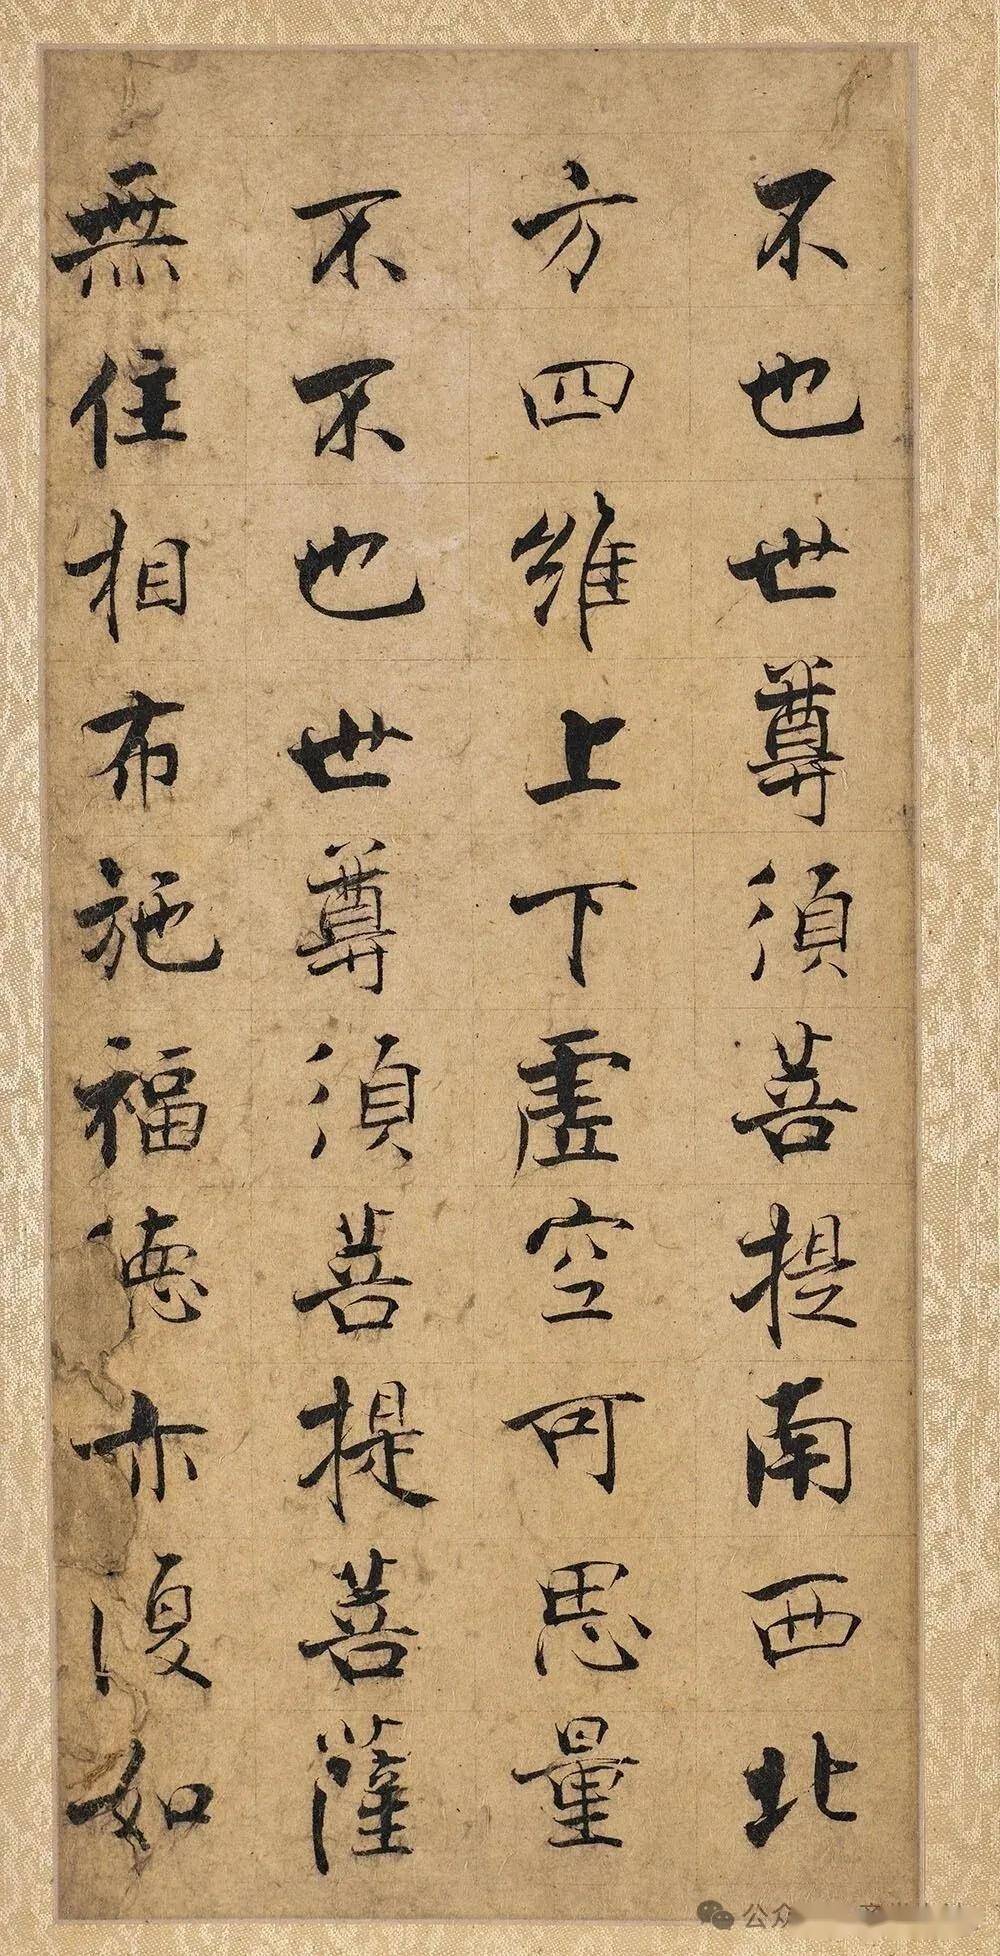 不也世尊須菩提南西北
方四維上下虛空可思量
不不也世尊須菩提菩薩
無住相布施福德亦復如
公众